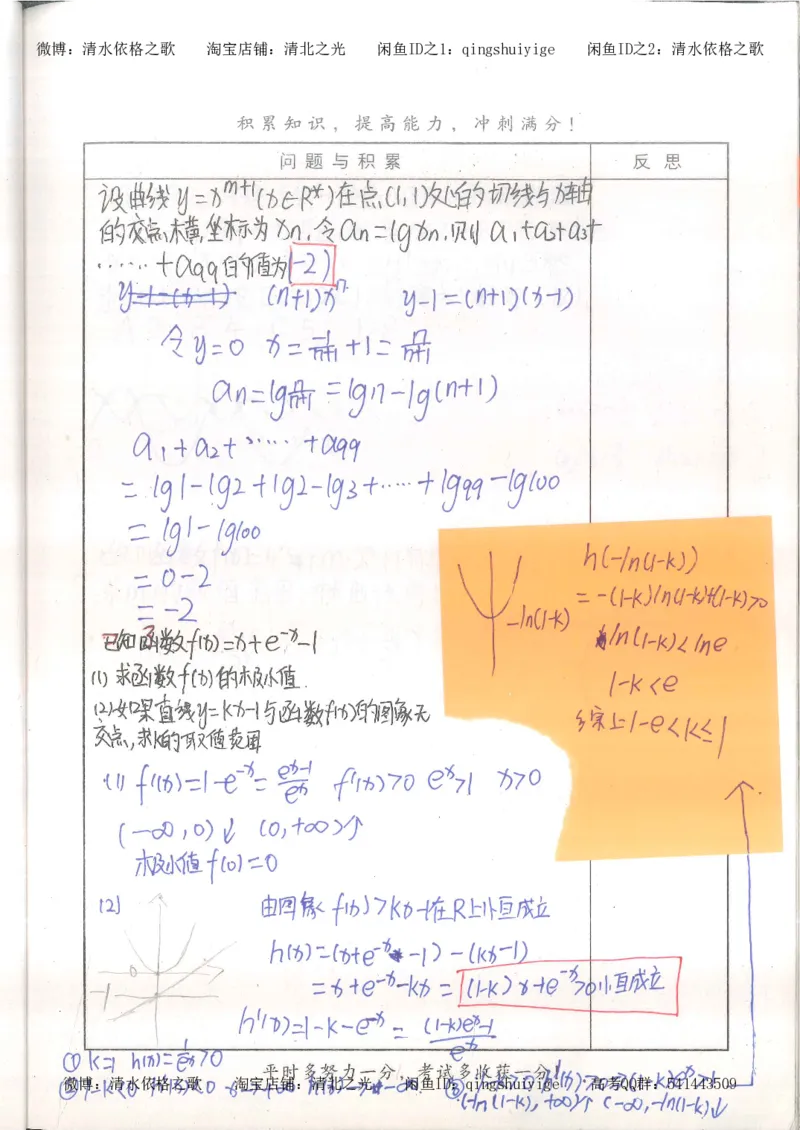 微博：清水依格之歌 淘宝店铺：清北之光 闲鱼ID之1：qingshuiyige 闲鱼ID之2：清水依格之歌
积累知识，提高能力，冲刺满分！
问题与积累 反思
设曲线y=x^{n+1}(x∈R*)在点(1,1)处的切线与x轴
的交点横坐标为xn,令an=lgxn,则a₁+a₂+a₃+
……+a99的值为(-2)
(n+1)xⁿ y-1=(n+1)(x-1)
令y=0 x=-1/(n+1)+1=n/(n+1)
an=lg n/(n+1)=lgn-lg(n+1)
a₁+a₂+……+a99
=lg1-lg2+lg2-lg3+……+lg99-lg100
=lg1-lg100
=0-2
=-2
已知函数f(x)=x+e^{-x}-1
(1)求函数f(x)的极小值.
(2)如果直线y=kx-1与函数f(x)的图象无
交点,求k的取值范围
(1) f'(x)=1-e^{-x}=(e^x-1)/e^x f'(x)>0 e^x>1 x>0
(-∞,0)↓ (0,+∞)↑
极小值f(0)=0
(2) 由图象f(x)>kx-1在R上恒成立
0
-1
h(x)=(x+e^{-x}-1)-(kx-1)
=x+e^{-x}-kx=(1-k)x+e^{-x}>0恒成立
h'(x)=1-k-e^{-x}=((1-k)e^x-1)/e^x
-ln(1-k)
h(-ln(1-k))
=-(1-k)ln(1-k)+(1-k)>0
ln(1-k)<lne
1-k<e
综上1-e<k≤1
① k=1 h(x)=1/e^x>0
平时多努力一分，考试多收获一分
微博：清水依格之歌 淘宝店铺：清北之光 闲鱼ID：qingshuiyige 高考QQ群：541443509
(-ln(1-k),+∞)↑ (-∞,-ln(1-k))↓